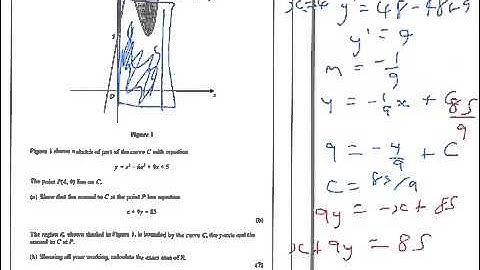 5
O
x
Figure 1
Figure 1 shows a sketch of part of the curve C with equation
y = x³ − 6x² + 9x + 5
The point P(4, 9) lies on C.
(a) Show that the normal to C at the point P has equation
x + 9y = 85
(6)
The region R, shown shaded in Figure 1, is bounded by the curve C, the y-axis and the
normal to C at P.
(b) Showing all your working, calculate the exact area of R.
(7)
x=4 y' = 48 - 48+9
y' = 9
m = -1/9
y = -1/9 x + 85/9
9 = -4/9 + C
C = 85/9
9y = -x + 85
x + 9y = 85